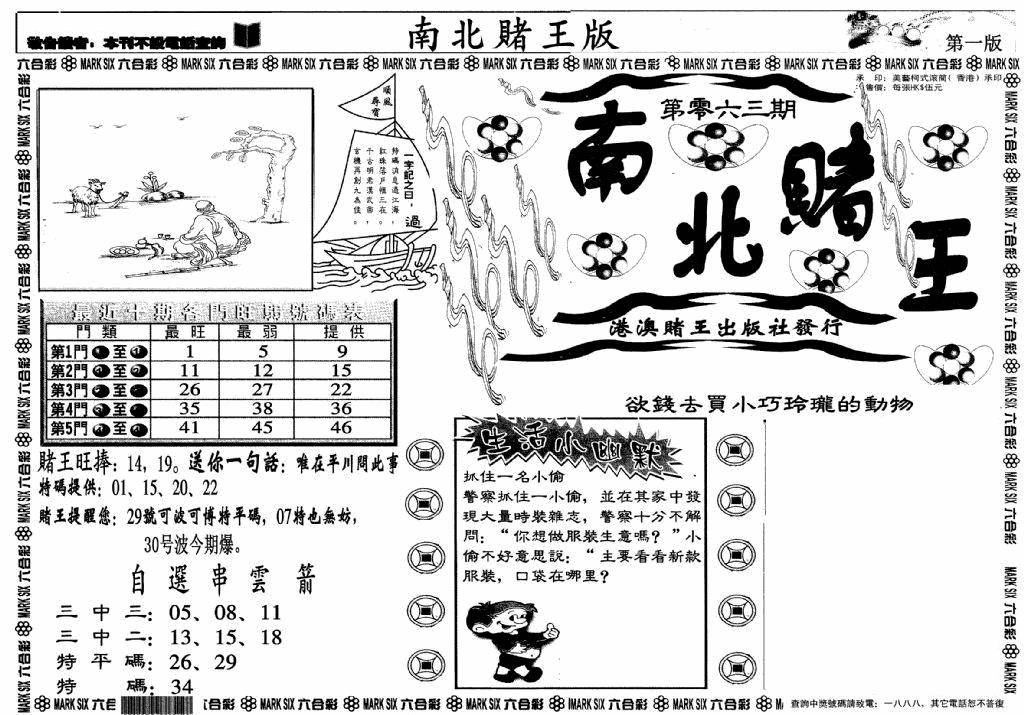 敬告讀者：本刊不設電話查詢
南北賭王版
第一版
六合彩 MARK SIX 六合彩 MARK SIX 六合彩 MARK SIX 六合彩 MARK SIX 六合彩 MARK SIX 六合彩 MARK SIX 六合彩 MARK SIX 六合彩 MARK SIX 六合彩 MARK SIX 六合彩 MARK SIX
承 印：美藝柯式滾筒（香港）承印
售價：每張HK$伍元
順風
尋寶
一字記之曰：過
特碼消息過江海，
紅珠落戶槓三在。
千古明老漢武帝，
玄機再創九為佳。
第零六三期
南北賭王
港澳賭王出版社發行
欲錢去買小巧玲瓏的動物
最近十期各門旺弱號碼表
門類 最旺 最弱 提供
第1門 至 1 5 9
第2門 至 11 12 15
第3門 至 26 27 22
第4門 至 35 38 36
第5門 至 41 45 46
賭王旺捧：14，19。送你一句話：唯在平川問此事
特碼提供：01、15、20、22
賭王提醒您：29號可波可博特平碼，07特也無妨，
30号波今期爆。
自選串雲箭
三中三：05、08、11
三中二：13、15、18
特平碼：26、29
特碼：34
生活小幽默
抓住一名小偷
警察抓住一小偷，並在其家中發
現大量時裝雜志，警察十分不解
問：“你想做服裝生意嗎？”小
偷不好意思說：“主要看看新款
服裝，口袋在哪里？
六合彩 MARK SIX 六合彩 MARK SIX 六合彩 MARK SIX 六合彩 MARK SIX 六合彩 MARK SIX 六合彩 MARK SIX 六合彩
查詢中獎號碼請致電：一八八八，其它電話恕不答復